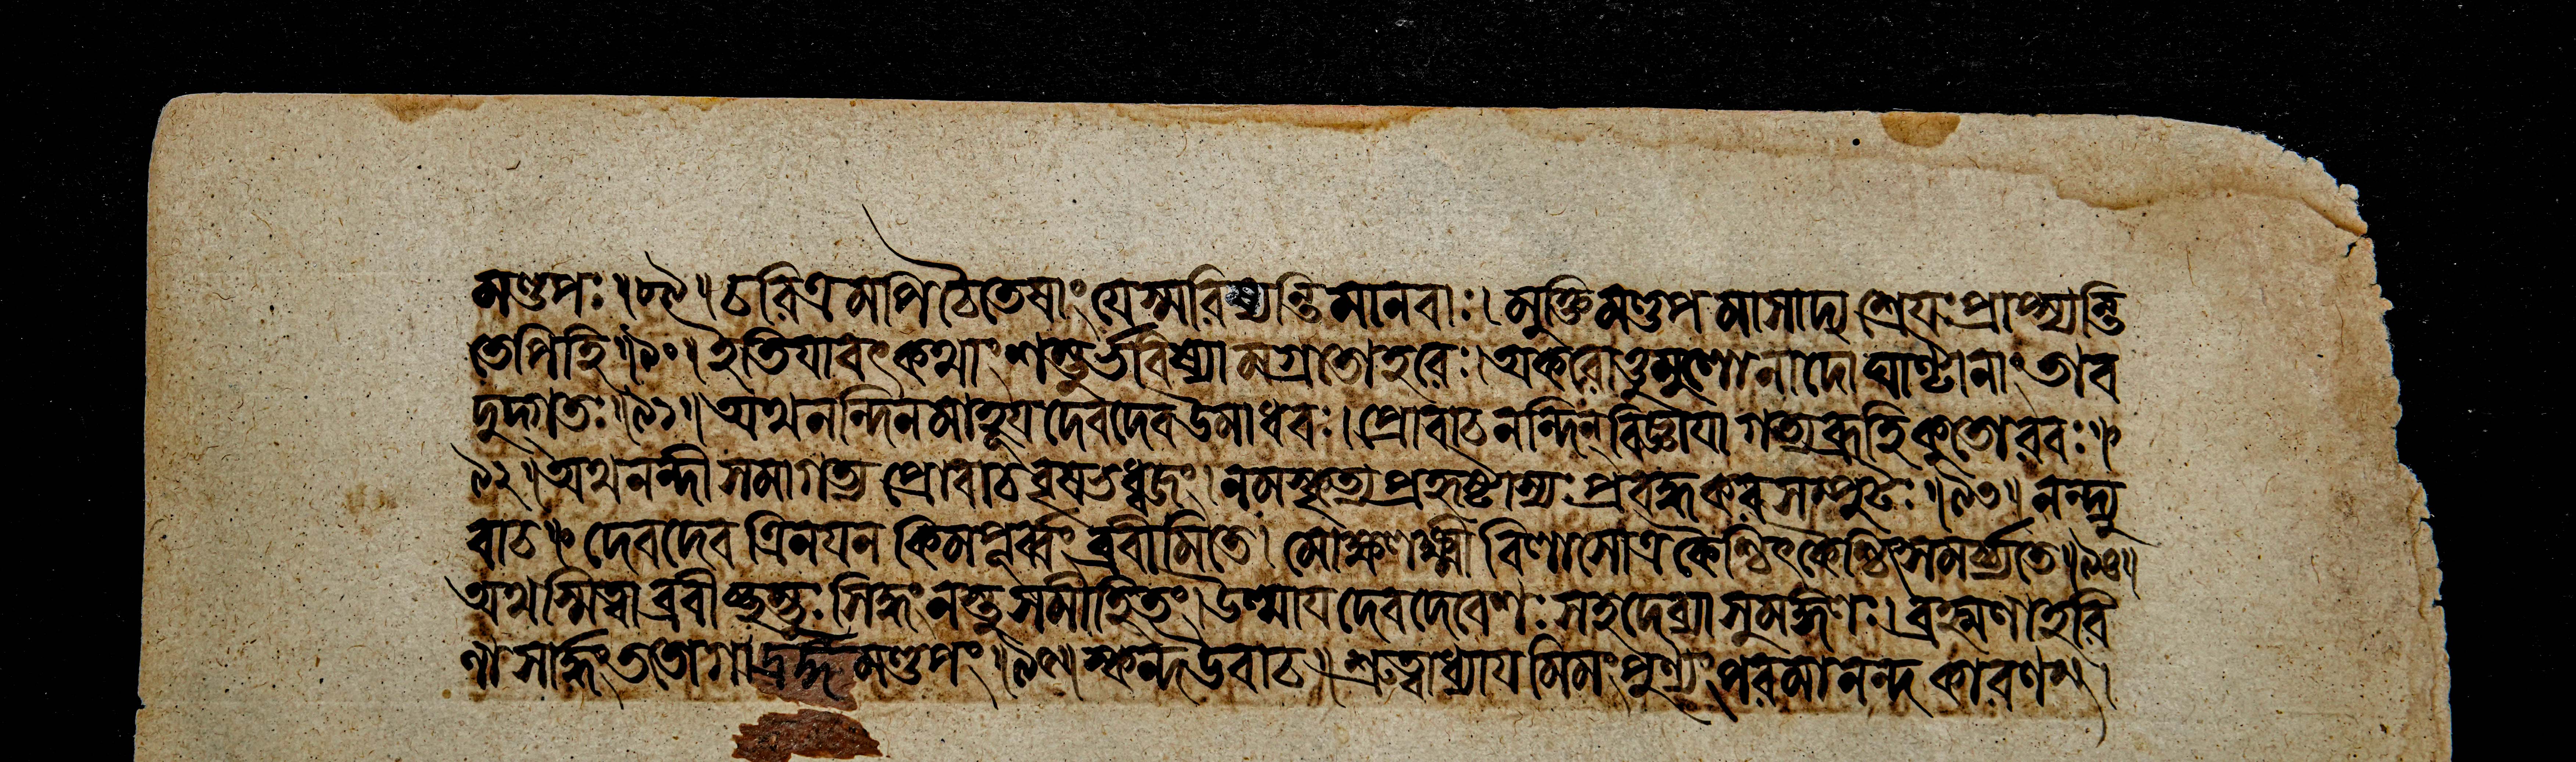 মণ্ডপঃ॥৮৯॥চরিত্রমপিচৈতেষাংযেস্মরিষ্যন্তিমানবাঃ।মুক্তিমণ্ডপমাসাদ্যশ্রেযঃপ্রাপ্স্যন্তি
তেপিহি॥৯০॥ইতিযাবৎকথাংশম্ভুর্ভবিষ্যামগ্রতোহরেঃ।অকরোত্তুমুলোনাদোঘণ্টানাংতাব
দুদ্গতঃ॥৯১॥অথনন্দিনমাহূযদেবদেবউমাধবঃ।প্রোবাচনন্দিন্বিজ্ঞাযাগত্যব্রূহিকুতোরবঃ॥
৯২॥অথনন্দীসমাগত্যপ্রোবাচবৃষভধ্বজং।নমস্কৃত্যপ্রহৃষ্টাস্যঃপ্রবদ্ধকরসম্পুটঃ॥৯৩॥নন্দ্যু
বাচ॥দেবদেবত্রিনযনকিমপূর্ব্বংব্রবীমিতে।মোক্ষলক্ষ্মীবিলাসোত্রকৈশ্চিৎকৈশ্চিৎসমর্চ্যতে॥৯৪॥
অথস্মিত্বাব্রবীচ্ছম্ভুঃসিদ্ধংনস্তুসমীহিতং।উত্থাযদেবদেবেশঃসহদেব্যাসুমঙ্গলঃ।ব্রহ্মণাহরি
ণাসার্দ্ধংততোগাদ্রঙ্গমণ্ডপং॥৯৫॥স্কন্দউবাচ॥শ্রুত্বাধ্যাযমিমংপুণ্যংপরমানন্দকারণম্।